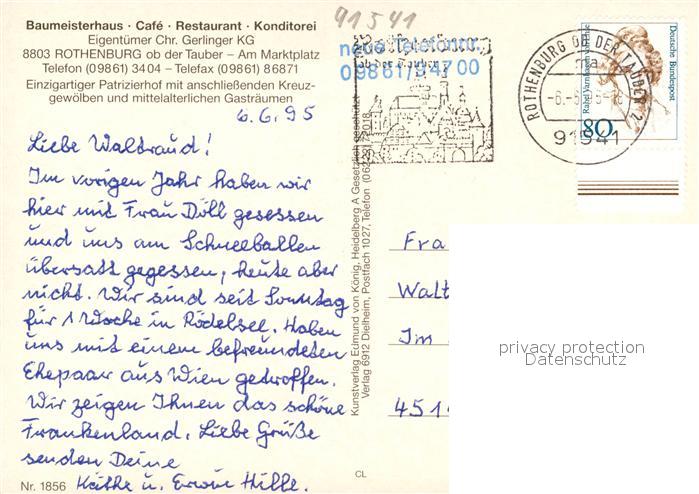 Baumeisterhaus · Café · Restaurant · Konditorei
Eigentümer Chr. Gerlinger KG
8803 ROTHENBURG ob der Tauber – Am Marktplatz
Telefon (09861) 3404 – Telefax (09861) 86871
Einzigartiger Patrizierhof mit anschließenden Kreuz-
gewölben und mittelalterlichen Gasträumen
6.6.95
Liebe Waltraud!
Im vorigen Jahr haben wir
hier mit Frau Döll gesessen
und uns am Schneeballen
übersatt gegessen, heute aber
nicht. Wir sind seit Sonntag
für 1 Woche in Rödelsee. Haben
uns mit einem befreundeten
Ehepaar aus Wien getroffen.
Wir zeigen Ihnen das schöne
Frankenland. Liebe Grüße
senden Deine
Käthe u. Erwin Hille.
Nr. 1856
CL
Kunstverlag Edmund von König, Heidelberg A Gesetzlich geschützt
Verlag 6912 Dielheim, Postfach 1027, Telefon
91541
neue Telefonnr.
09861/94700
ob der Tauber
ROTHENBURG OB DER TAUBER 2
91541
Deutsche Bundespost
Rahel Varnhagen von Ense
80
Fra
Walt
Im
451
privacy protection
Datenschutz